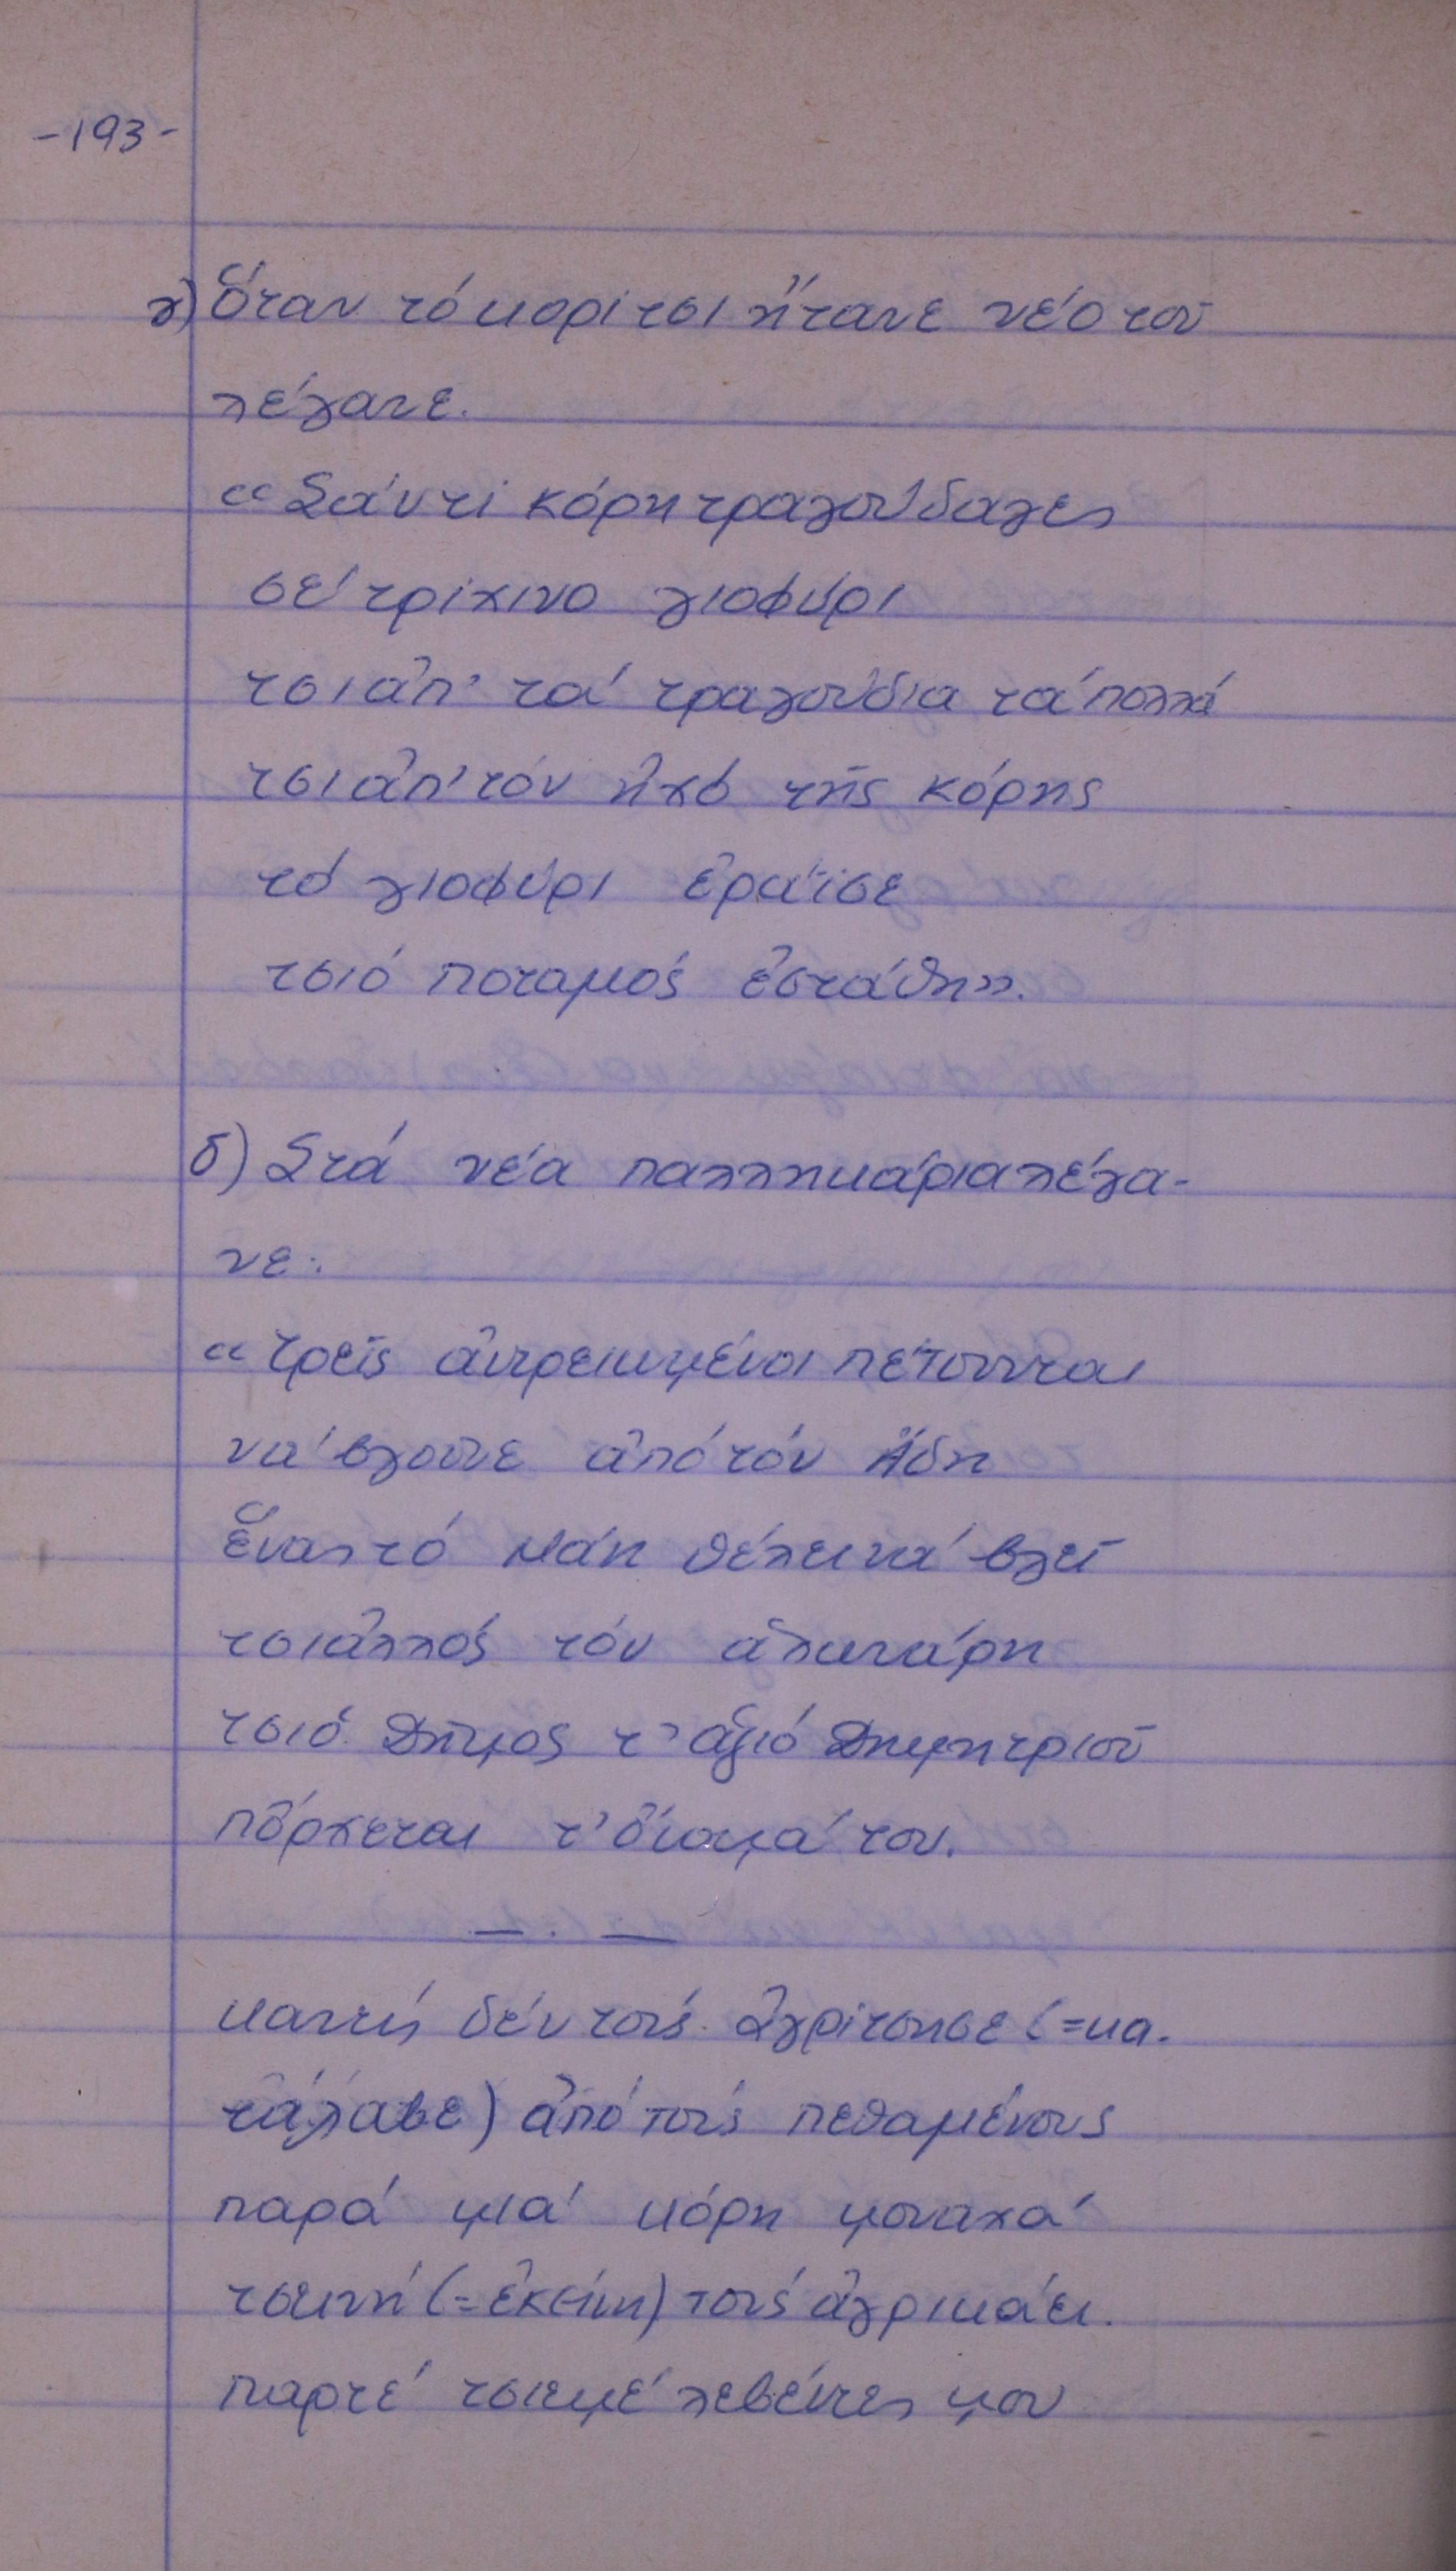 -193-
γ) Ὅταν τό κορίτσι ἤτανε νέο τοῦ
λέγανε.
«Σάν τί κόρη τραγούδαγες
σέ τρίχινο γιοφύρι
τσι ἀπ' τά τραγούδια τά πολλά
τσι ἀπ' τόν ἠχό τῆς κόρης
τό γιοφύρι ἐράϊσε
τσι ὁ ποταμός ἐστάθη».
δ) Στά νέα παλληκάρια λέγα-
νε:
«Τρεῖς ἀντρειωμένοι πέτουνται
νά βγοῦνε ἀπό τόν Ἅδη
ἕνας τό Μάη θέλει νά βγεῖ
τσι ἀλλός τόν ἁλωνάρη
τσι ὁ Δῆμος τ' ἁγιό Δημητριοῦ
πὄρχεται τ' ὄνομά του.
— . —
κανείς δέν τούς ἀγρίτσησε (=κα-
τάλαβε) ἀπό τούς πεθαμένους
παρά μιά κόρη μοναχά
τσεινή (=ἐκείνη) τούς ἀγρικάει.
παρτέ τσιεμέ λεβέντες μου